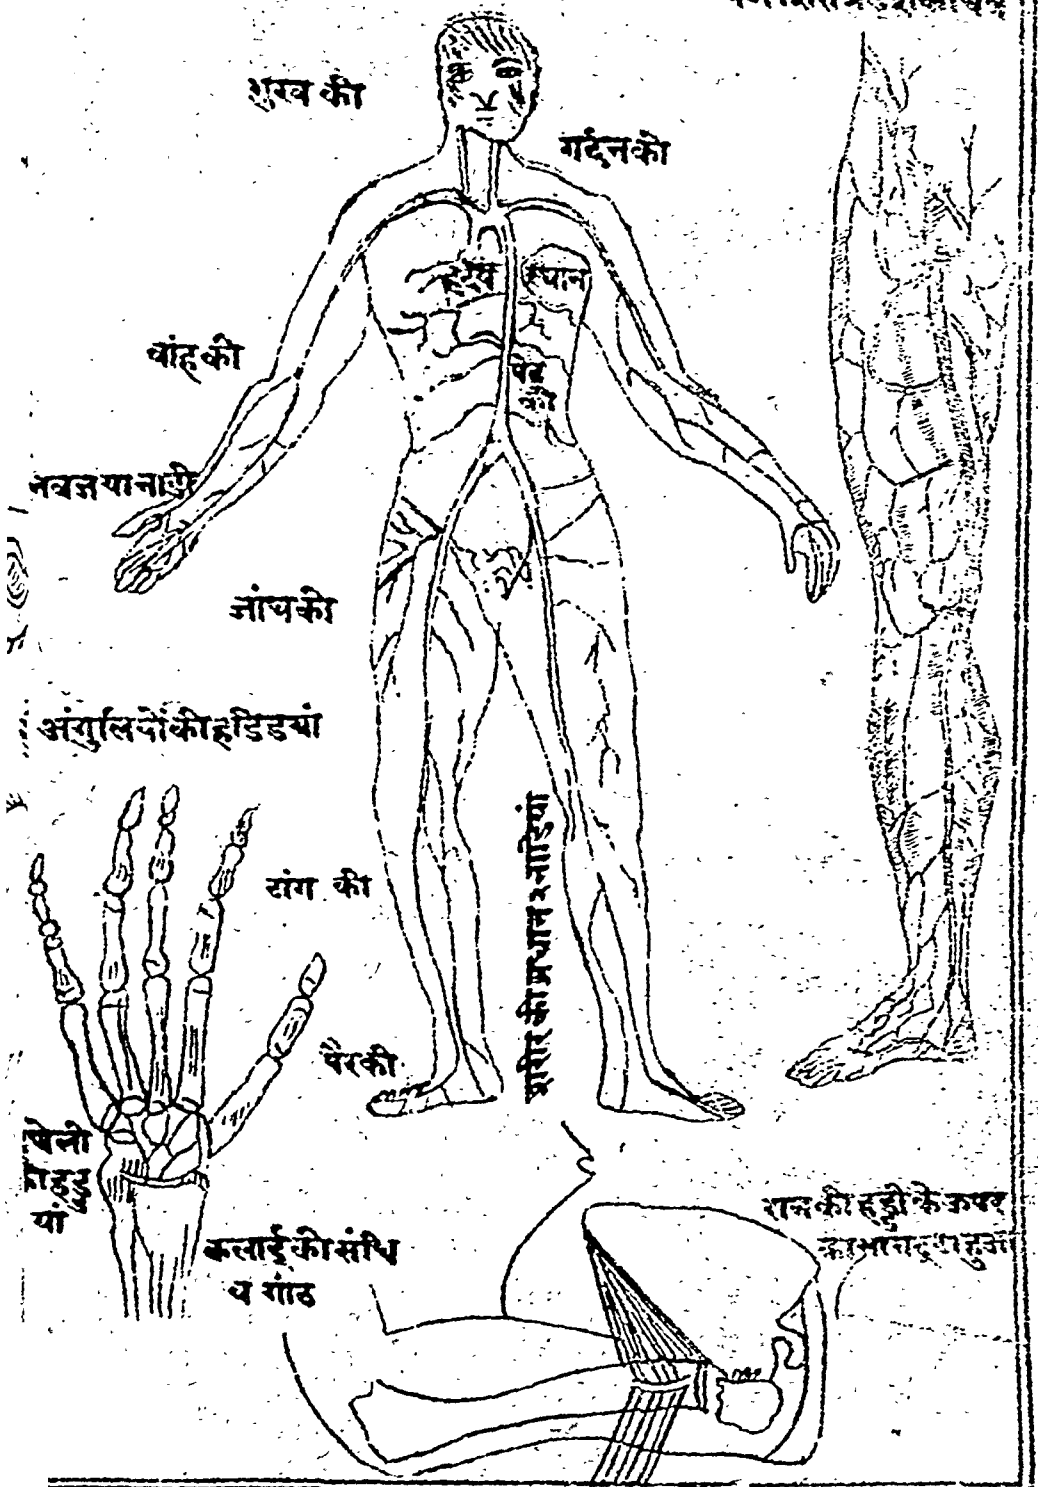 मुख की
गर्दन की
हृदय स्थान
बांह की
पेट
की
नवज या नाडी
जांघ की
अंगुलियों की हडिडयां
टांग की
शरीर की प्रधान २ नाडियां
पैर की
यां
कलाई की संधि
व गांठ
रान की हड्डी के ऊपर
का भाग टूटा हुआ